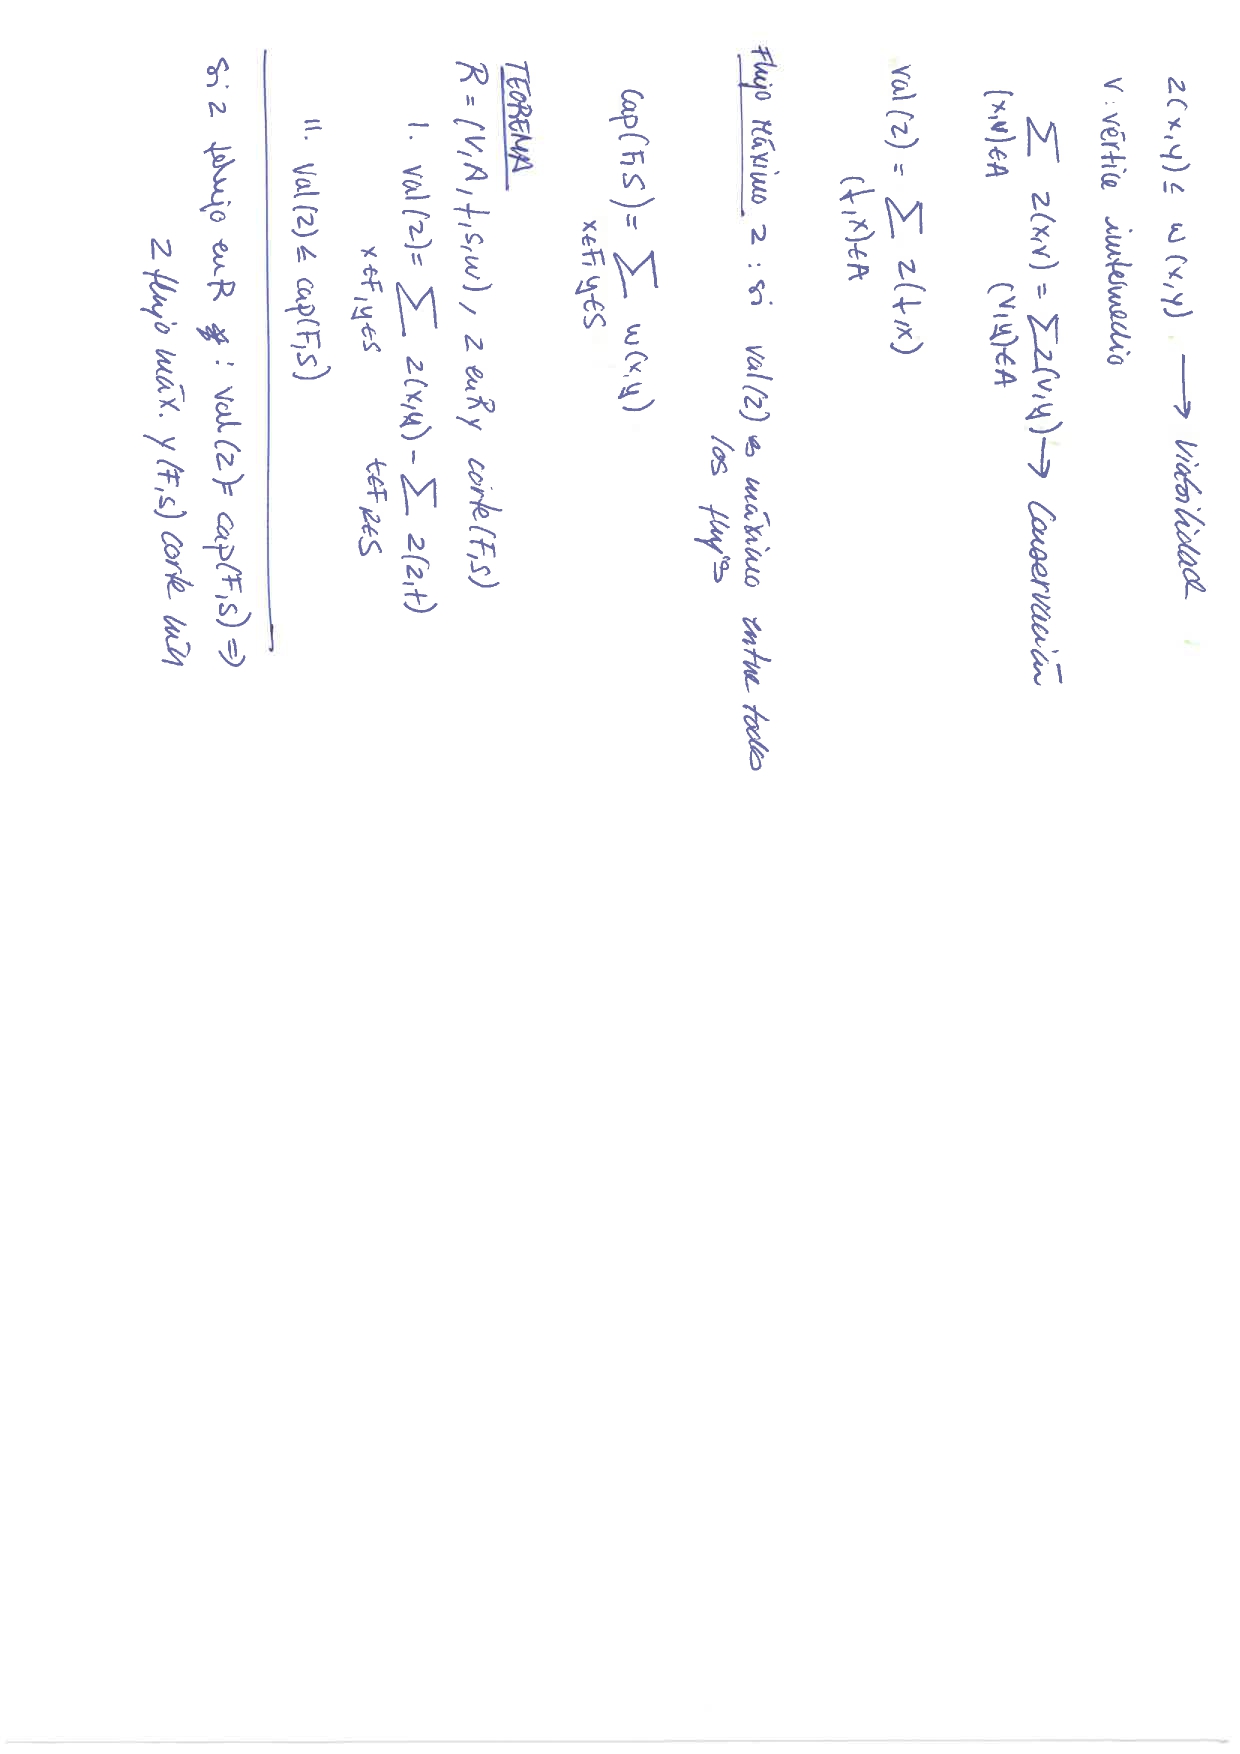 z(x,y) ≤ w(x,y) → Viabilidad
v: vértice intermedio
∑ z(x,v) = ∑ z(v,y) → Conservación
(x,v)∈A (v,y)∈A
val(z) = ∑ z(f,x)
(f,x)∈A
Flujo Máximo z : si val(z) es máximo entre todos
los flujos
cap(F,S) = ∑ w(x,y)
x∈F,y∈S
TEOREMA
R = (V,A,f,s,w), z en R y corte(F,S)
I. val(z) = ∑ z(x,y) - ∑ z(z,t)
x∈F,y∈S t∈F,z∈S
II. val(z) ≤ cap(F,S)
Si z flujo en R : val(z) = cap(F,S) ⇒
z flujo máx. y (F,S) corte mín